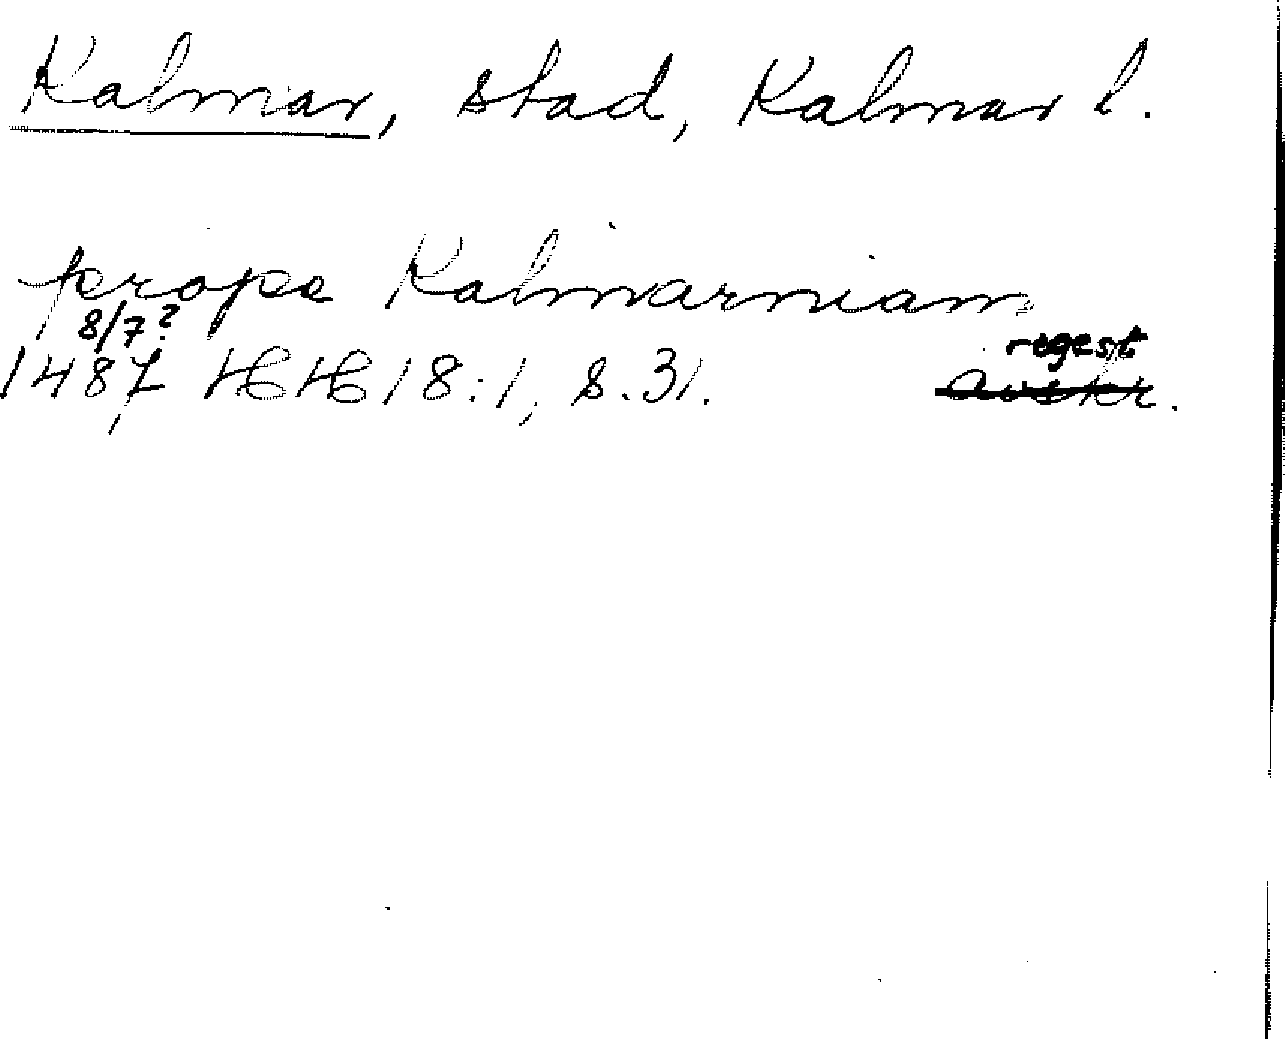 Kalmar, stad, Kalmar l.
prope Kalmarniam
8/7?
regest
1487 HH 18:1, s. 31. avskr.